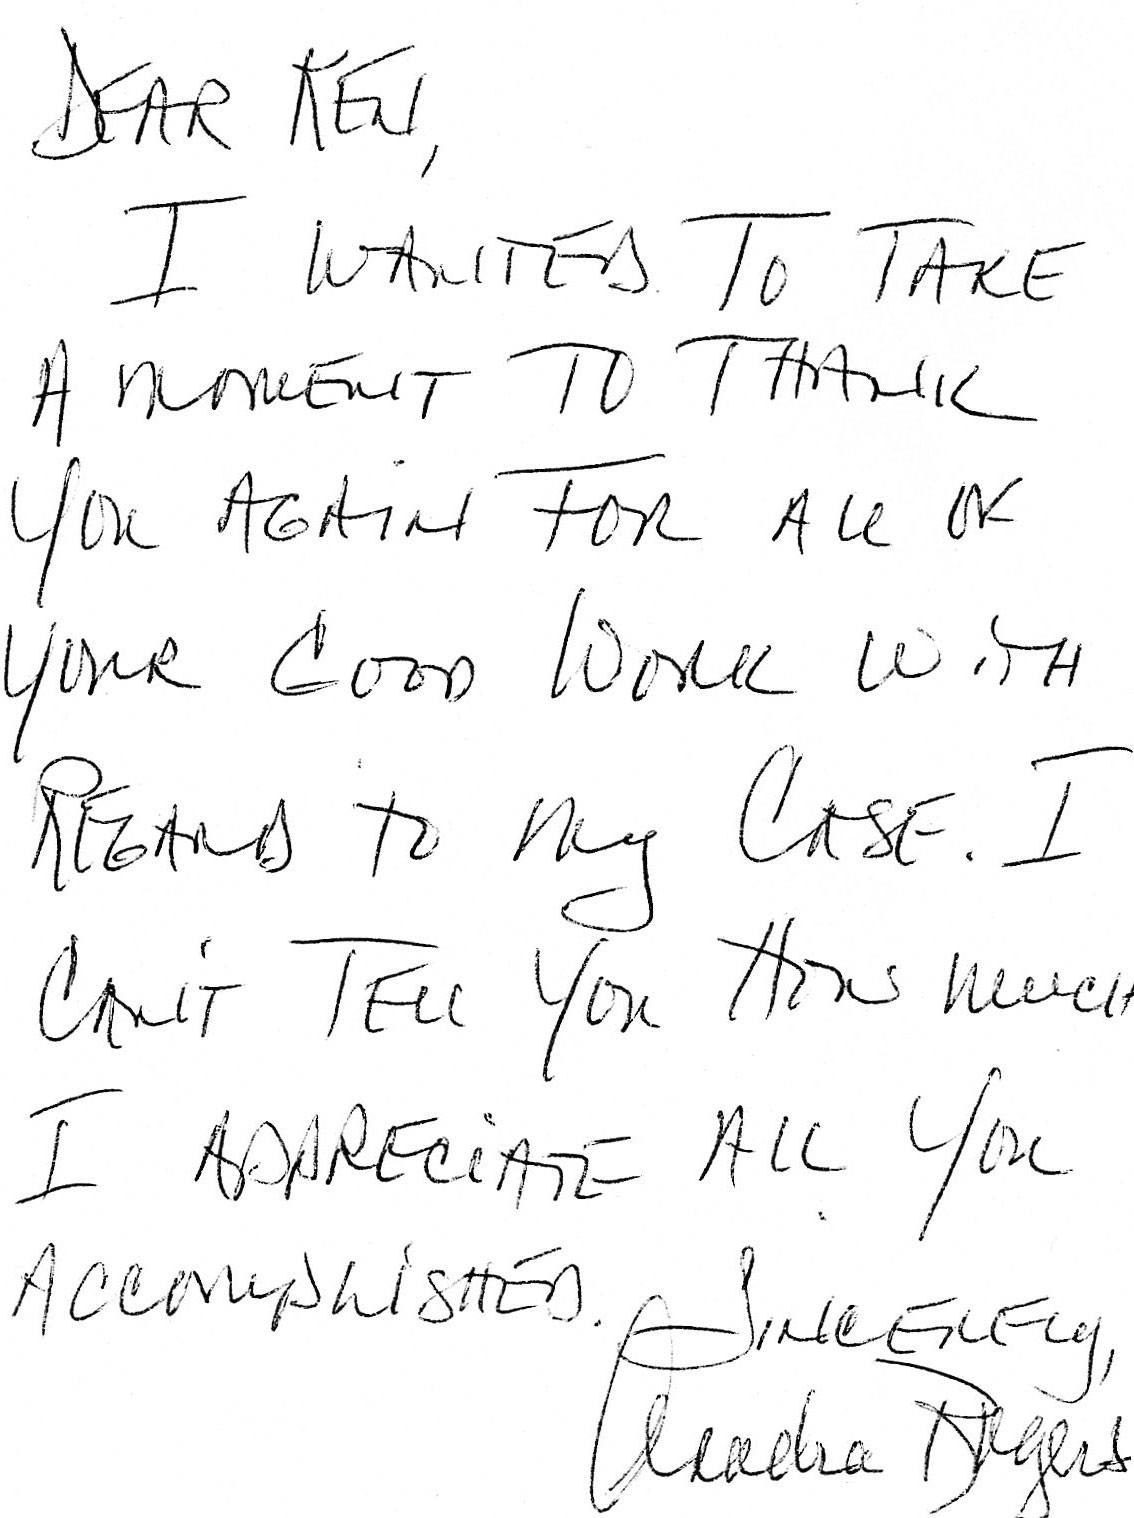 DEAR KEN,
I WANTED TO TAKE
A MOMENT TO THANK
YOU AGAIN FOR ALL OF
YOUR GOOD WORK WITH
REGARD TO MY CASE. I
CAN'T TELL YOU HOW MUCH
I APPRECIATE ALL YOU
ACCOMPLISHED.
SINCERELY,
Rogers